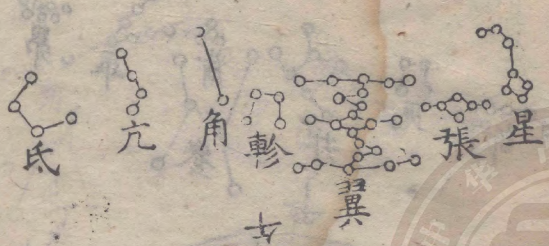 星
張
翼
軫
角
亢
氐